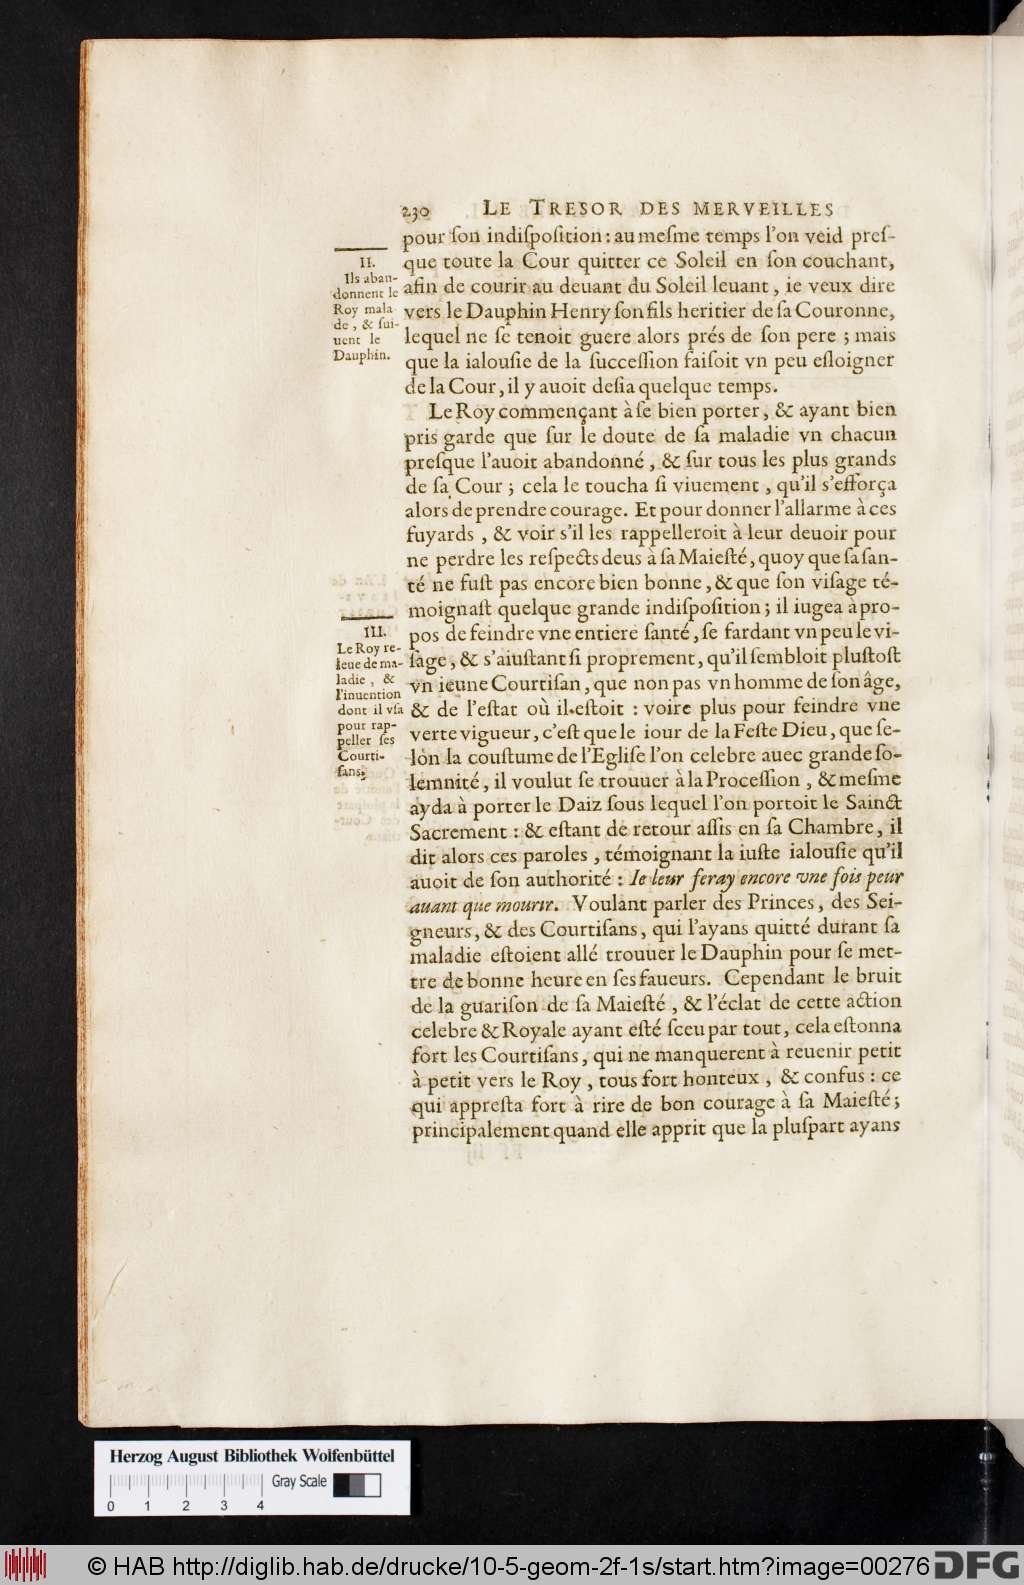 230 LE TRESOR DES MERVEILLES
pour ſon indiſpoſition : au meſme temps l'on veid preſ-
que toute la Cour quitter ce Soleil en ſon couchant,
afin de courir au deuant du Soleil leuant, ie veux dire
vers le Dauphin Henry ſon fils heritier de ſa Couronne,
lequel ne ſe tenoit guere alors prés de ſon pere ; mais
que la ialouſie de la ſucceſſion faiſoit vn peu eſloigner
de la Cour, il y auoit deſia quelque temps.
II.
Ils aban-
donnent le
Roy mala
de, & ſui-
uent le
Dauphin.
Le Roy commençant à ſe bien porter, & ayant bien
pris garde que ſur le doute de ſa maladie vn chacun
preſque l'auoit abandonné, & ſur tous les plus grands
de ſa Cour ; cela le toucha ſi viuement, qu'il s'efforça
alors de prendre courage. Et pour donner l'allarme à ces
fuyards, & voir s'il les rappelleroit à leur deuoir pour
ne perdre les reſpects deus à ſa Maieſté, quoy que ſa ſan-
té ne fuſt pas encore bien bonne, & que ſon viſage té-
moignaſt quelque grande indiſpoſition ; il iugea à pro-
pos de feindre vne entiere ſanté, ſe fardant vn peu le vi-
ſage, & s'aiuſtant ſi proprement, qu'il ſembloit pluſtoſt
vn ieune Courtiſan, que non pas vn homme de ſon âge,
& de l'eſtat où il eſtoit : voire plus pour feindre vne
verte vigueur, c'eſt que le iour de la Feſte Dieu, que ſe-
lon la couſtume de l'Egliſe l'on celebre auec grande ſo-
lemnité, il voulut ſe trouuer à la Proceſſion, & meſme
ayda à porter le Daiz ſous lequel l'on portoit le Sainct
Sacrement : & eſtant de retour aſſis en ſa Chambre, il
dit alors ces paroles, témoignant la iuſte ialouſie qu'il
auoit de ſon authorité : Ie leur feray encore vne fois peur
auant que mourir. Voulant parler des Princes, des Sei-
gneurs, & des Courtiſans, qui l'ayans quitté durant ſa
maladie eſtoient allé trouuer le Dauphin pour ſe met-
tre de bonne heure en ſes faueurs. Cependant le bruit
de la guariſon de ſa Maieſté, & l'éclat de cette action
celebre & Royale ayant eſté ſceu par tout, cela eſtonna
fort les Courtiſans, qui ne manquerent à reuenir petit
à petit vers le Roy, tous fort honteux, & confus : ce
qui appreſta fort à rire de bon courage à ſa Maieſté ;
principalement quand elle apprit que la pluſpart ayans
III.
Le Roy re-
leue de ma-
ladie, &
l'inuention
dont il vſa
pour rap-
peller ſes
Courti-
ſans.
Herzog August Bibliothek Wolfenbüttel
Gray Scale
0 1 2 3 4
© HAB http://diglib.hab.de/drucke/10-5-geom-2f-1s/start.htm?image=00276 DFG